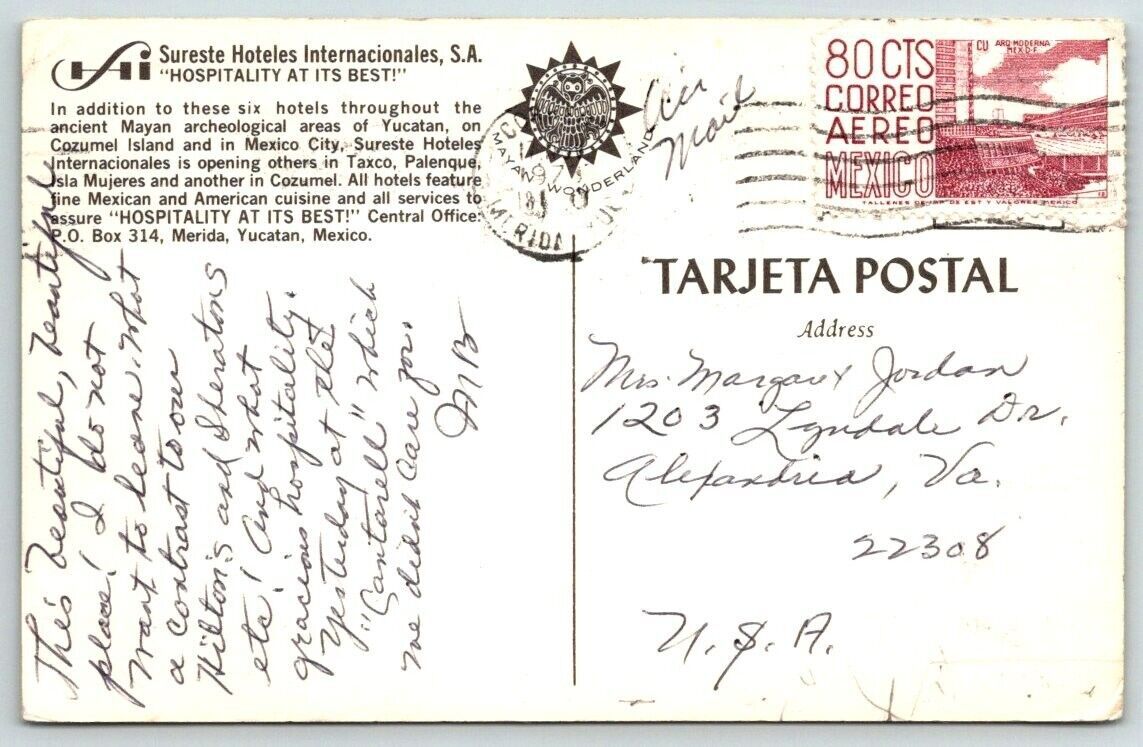 Sureste Hoteles Internacionales, S.A.
"HOSPITALITY AT ITS BEST!"
In addition to these six hotels throughout the
ancient Mayan archeological areas of Yucatan, on
Cozumel Island and in Mexico City, Sureste Hoteles
Internacionales is opening others in Taxco, Palenque,
Isla Mujeres and another in Cozumel. All hotels feature
fine Mexican and American cuisine and all services to
assure "HOSPITALITY AT ITS BEST!" Central Office:
P.O. Box 314, Merida, Yucatan, Mexico.
MAYAN WONDERLAND
MERIDA
Air
Mail
80 CTS
CORREO
AEREO
MEXICO
CU ARQ MODERNA
MEX D-F
TALLERES DE IMP DE EST Y VALORES MEXICO
This beautiful, beautiful
place! I do not
want to leave. What
a contrast to our
Hilton's and Sheratons
etc! And what
gracious hospitality.
Yesterday at the
"Cantarell" which
we didn't care for.
TARJETA POSTAL
Address
Mrs. Margaret Jordan
1203 Lyndale Dr.
Alexandria, Va.
22308
U.S.A.